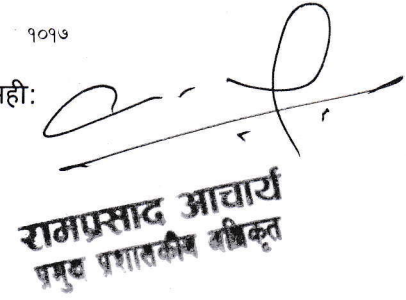 १०१७
सही:
रामप्रसाद आचार्य
प्रमुख प्रशासकीय अधिकृत